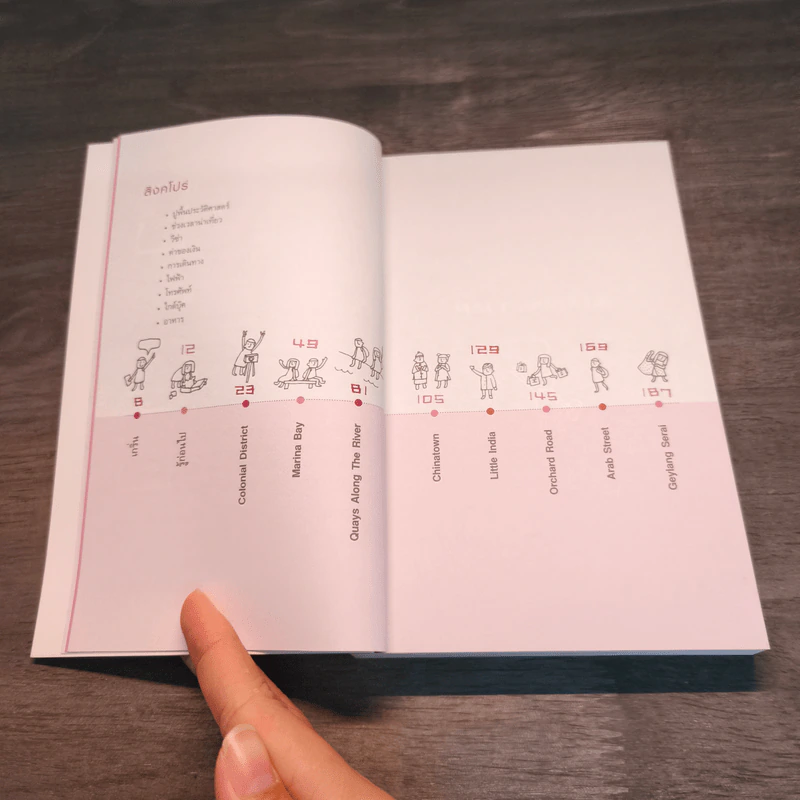 สิงคโปร์
• ปูพื้นประวัติศาสตร์
• ช่วงเวลาน่าเที่ยว
• วีซ่า
• ค่าของเงิน
• การเดินทาง
• ไฟฟ้า
• โทรศัพท์
• ไกด์บุ๊ค
• อาหาร
8
เกริ่น
12
รู้ก่อนไป
23
Colonial District
49
Marina Bay
81
Quays Along The River
105
Chinatown
129
Little India
145
Orchard Road
169
Arab Street
187
Geylang Serai